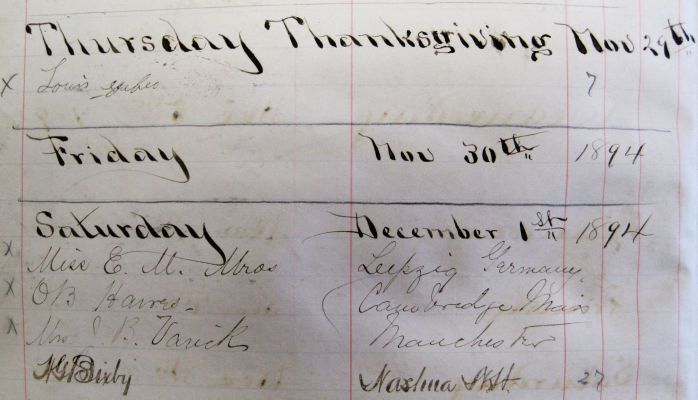 Thursday Thanksgiving Nov 29th
x Louis 7
Friday Nov 30th 1894
Saturday December 1st 1894
x Miss E. M. Mros Leipzig Germany
x O B Hawes Cambridge Mass
x Mrs J. B. Varick Manchester
Bixby Nashua N.H. 27